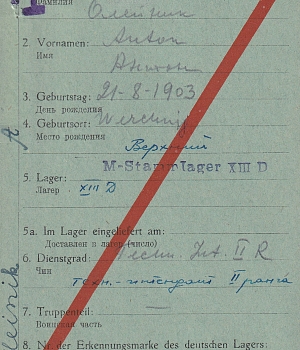 Фамилия
Олейник
2. Vornamen: Anton
Имя
Антон
3. Geburtstag: 21-8-1903
День рождения
4. Geburtsort: Werchnij
Место рождения
Верхний
M-Stammlager XIII D
5. Lager:
Лагер XIII D
5a. Im Lager eingeliefert am:
Доставлен в лагер (число)
6. Dienstgrad: Techn. Int. II R
Чин
техн.-интендант II ранга
7. Truppenteil: —
Воинская часть
8. Nr. der Erkennungsmarke des deutschen Lagers:
A